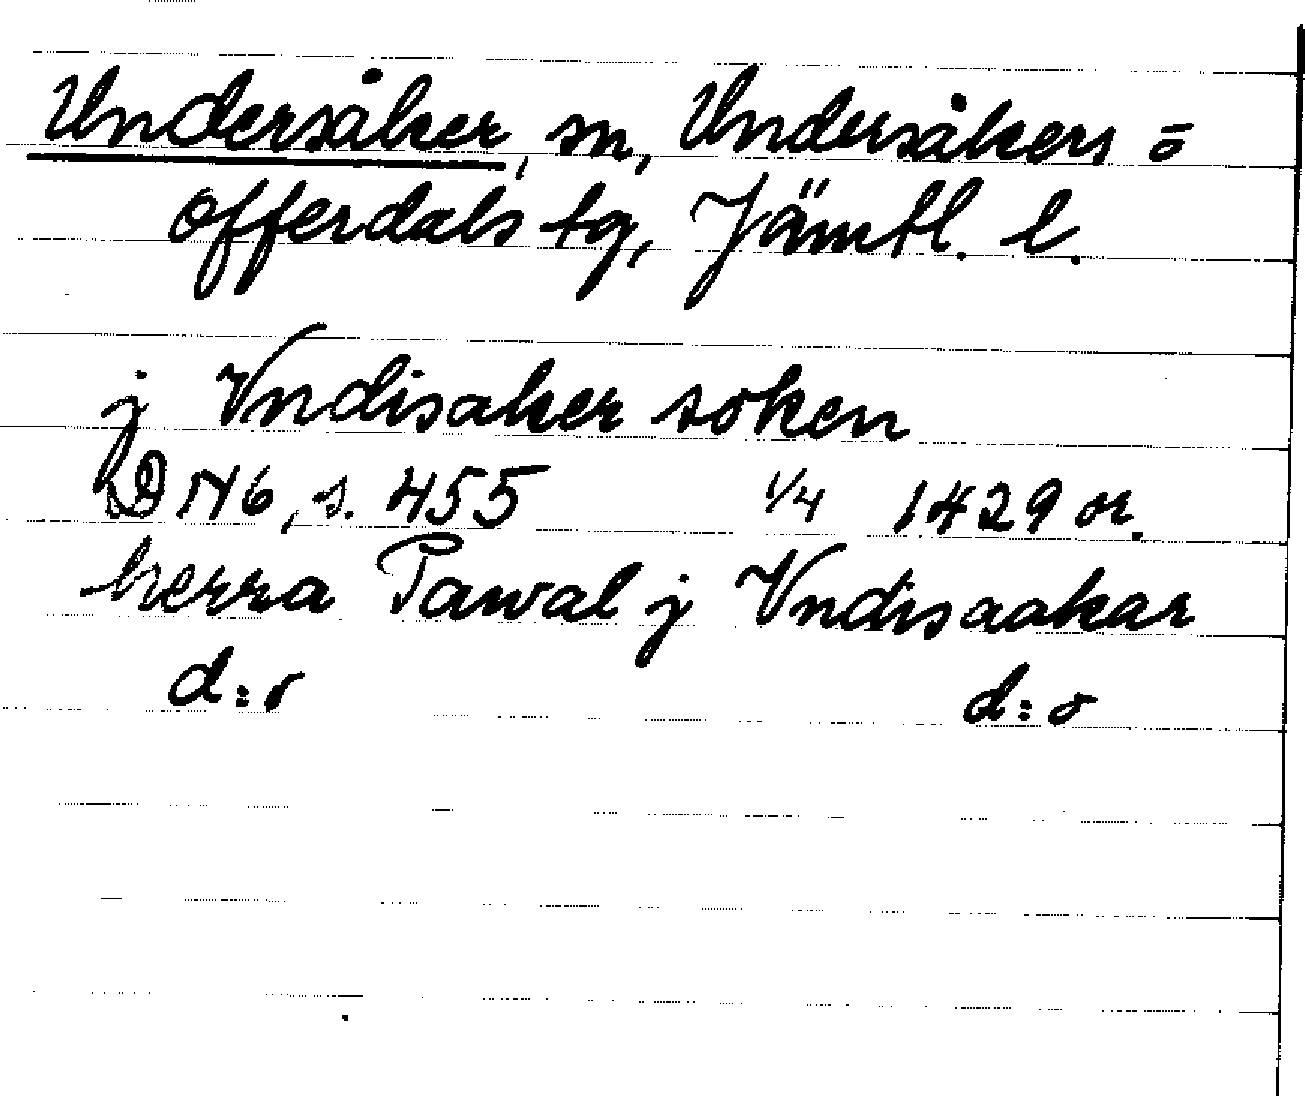 Undersåker, sn, Undersåkers =
offerdals tg, Jämtl. l.
j Vndisaker soken
DN 6, s. 455 1/4 1429 or.
herra Pawal j Vndisaakar
d:o d:o